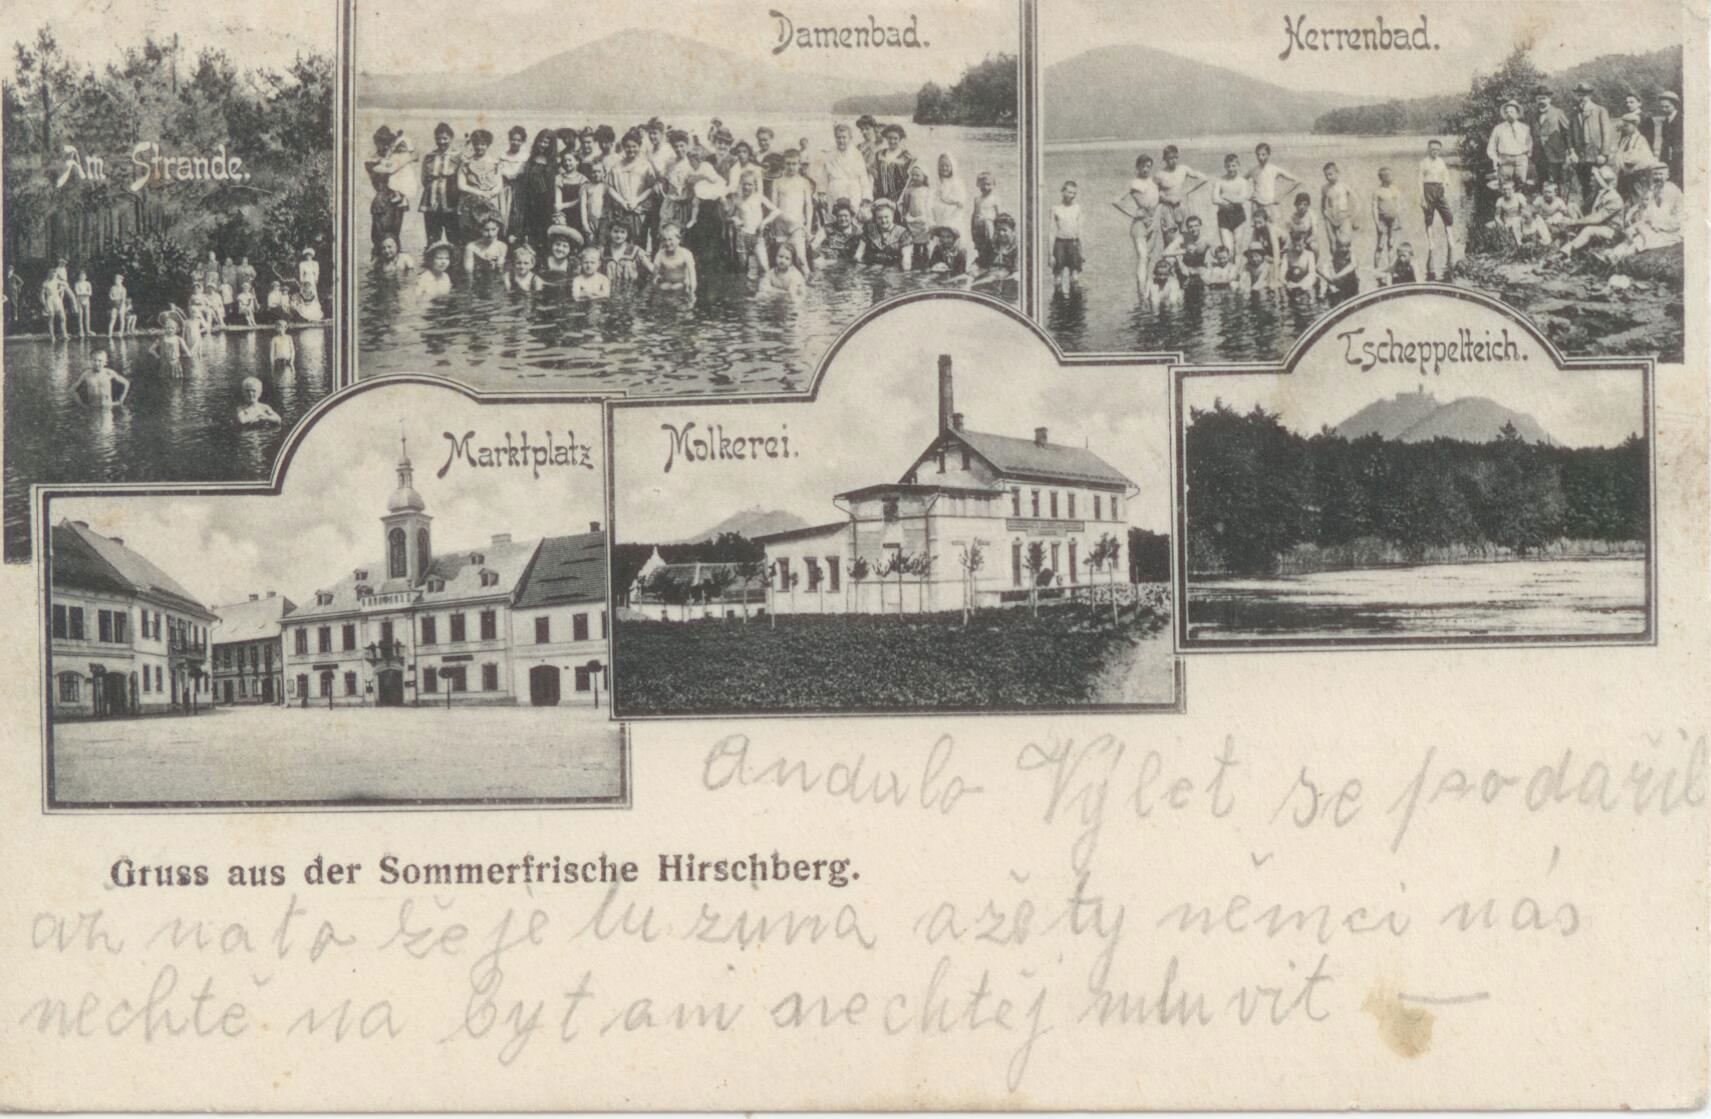 Damenbad.
Herrenbad.
Am Strande.
Tscheppelteich.
Marktplatz
Molkerei.
Andulo Výlet se podařil
Gruss aus der Sommerfrische Hirschberg.
až na to že je tu zima a že ty němci nás
nechtě na byt ani nechtěj mluvit —